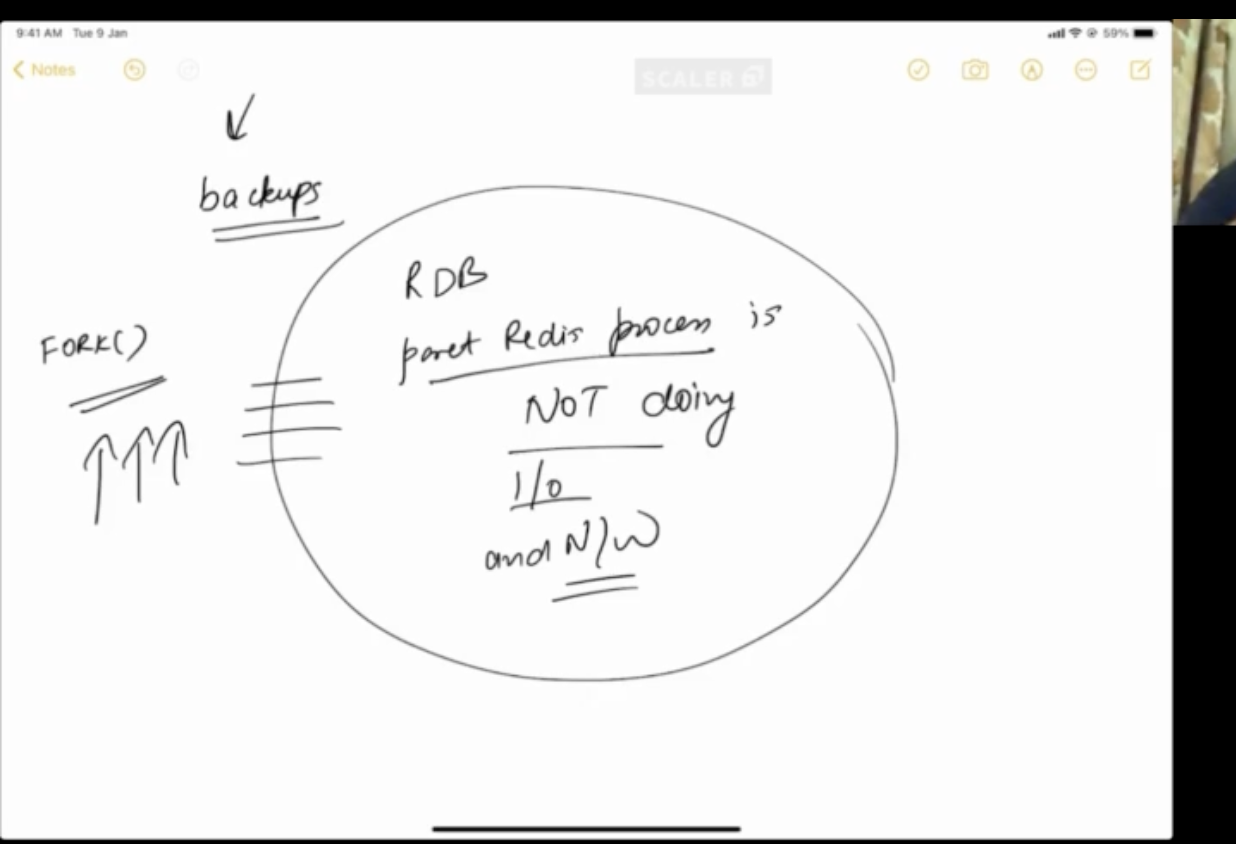 9:41 AM Tue 9 Jan
59%
Notes
SCALER
backups
RDB
FORK()
paret Redis process is
NOT doing
I/O
and N/W